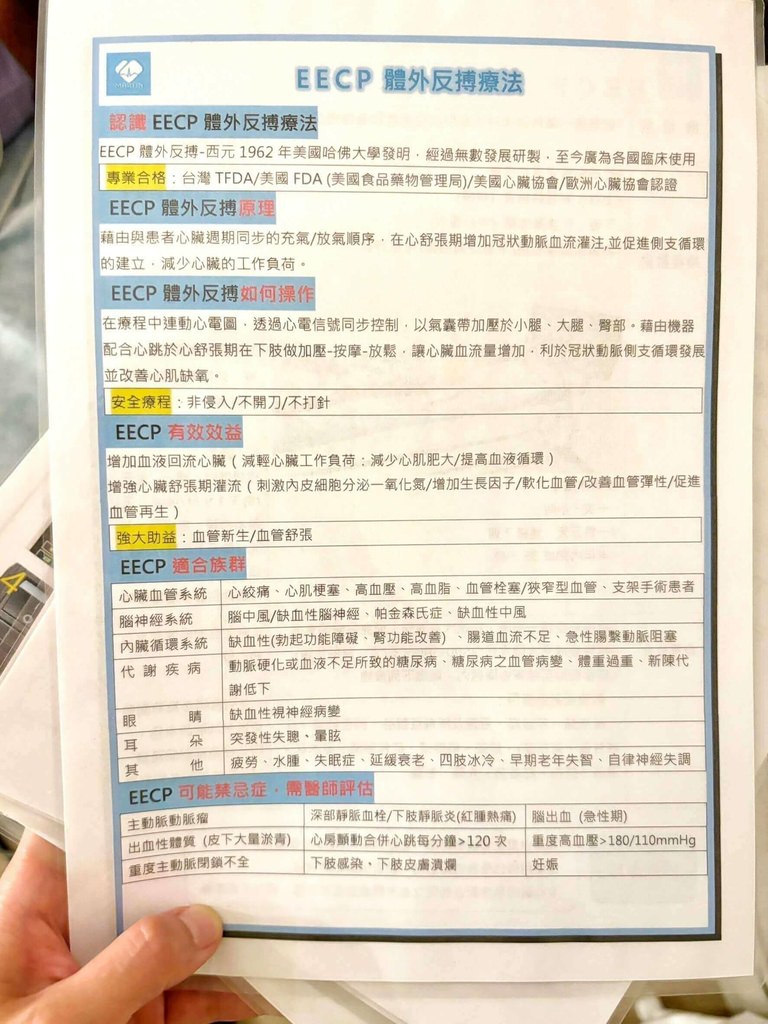 EECP 體外反搏療法
認識 EECP 體外反搏療法
EECP 體外反搏-西元 1962 年美國哈佛大學發明，經過無數發展研製，至今廣為各國臨床使用
專業合格：台灣 TFDA/美國 FDA (美國食品藥物管理局)/美國心臟協會/歐洲心臟協會認證
EECP 體外反搏原理
藉由與患者心臟週期同步的充氣/放氣順序，在心舒張期增加冠狀動脈血流灌注,並促進側支循環
的建立，減少心臟的工作負荷。
EECP 體外反搏如何操作
在療程中連動心電圖，透過心電信號同步控制，以氣囊帶加壓於小腿、大腿、臀部。藉由機器
配合心跳於心舒張期在下肢做加壓-按摩-放鬆，讓心臟血流量增加，利於冠狀動脈側支循環發展
並改善心肌缺氧。
安全療程：非侵入/不開刀/不打針
EECP 有效效益
增加血液回流心臟（減輕心臟工作負荷：減少心肌肥大/提高血液循環）
增強心臟舒張期灌流（刺激內皮細胞分泌一氧化氮/增加生長因子/軟化血管/改善血管彈性/促進
血管再生）
強大助益：血管新生/血管舒張
EECP 適合族群
心臟血管系統 心絞痛、心肌梗塞、高血壓、高血脂、血管栓塞/狹窄型血管、支架手術患者
腦神經系統 腦中風/缺血性腦神經、帕金森氏症、缺血性中風
內臟循環系統 缺血性(勃起功能障礙、腎功能改善)、腸道血流不足、急性腸繫動脈阻塞
代謝疾病 動脈硬化或血液不足所致的糖尿病、糖尿病之血管病變、體重過重、新陳代
謝低下
眼睛 缺血性視神經病變
耳朵 突發性失聰、暈眩
其他 疲勞、水腫、失眠症、延緩衰老、四肢冰冷、早期老年失智、自律神經失調
EECP 可能禁忌症，需醫師評估
主動脈動脈瘤 深部靜脈血栓/下肢靜脈炎(紅腫熱痛) 腦出血 (急性期)
出血性體質 (皮下大量淤青) 心房顫動合併心跳每分鐘>120 次 重度高血壓>180/110mmHg
重度主動脈閉鎖不全 下肢感染、下肢皮膚潰爛 妊娠
4